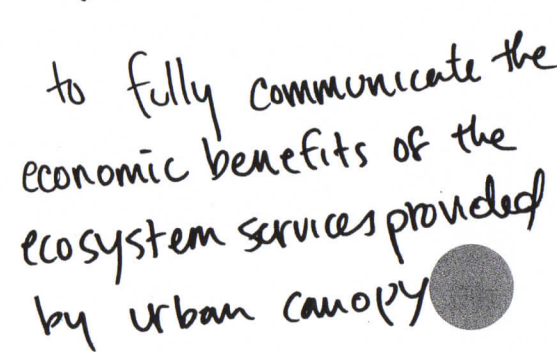 to fully communicate the
economic benefits of the
ecosystem services provided
by urban canopy